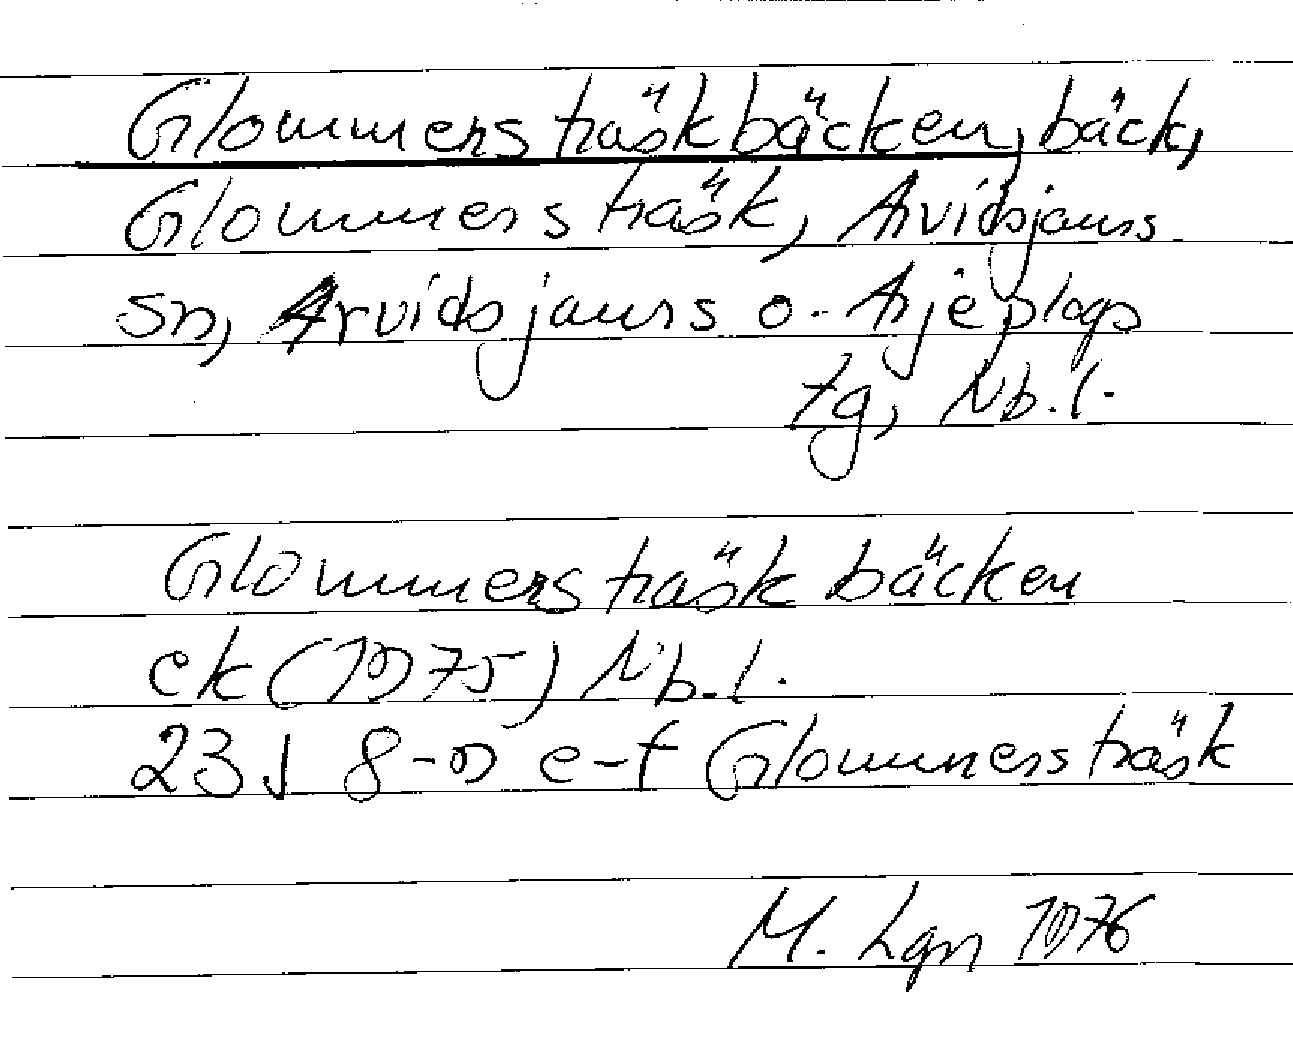 Glommersträskbäcken, bäck,
Glommersträsk, Arvidsjaurs
sn, Arvidsjaurs o. Arjeplogs
tg, Nb.l.
Glommersträskbäcken
ek (1975) Nb.l.
23J 8-9 e-f Glommersträsk
M. Lgn 1976